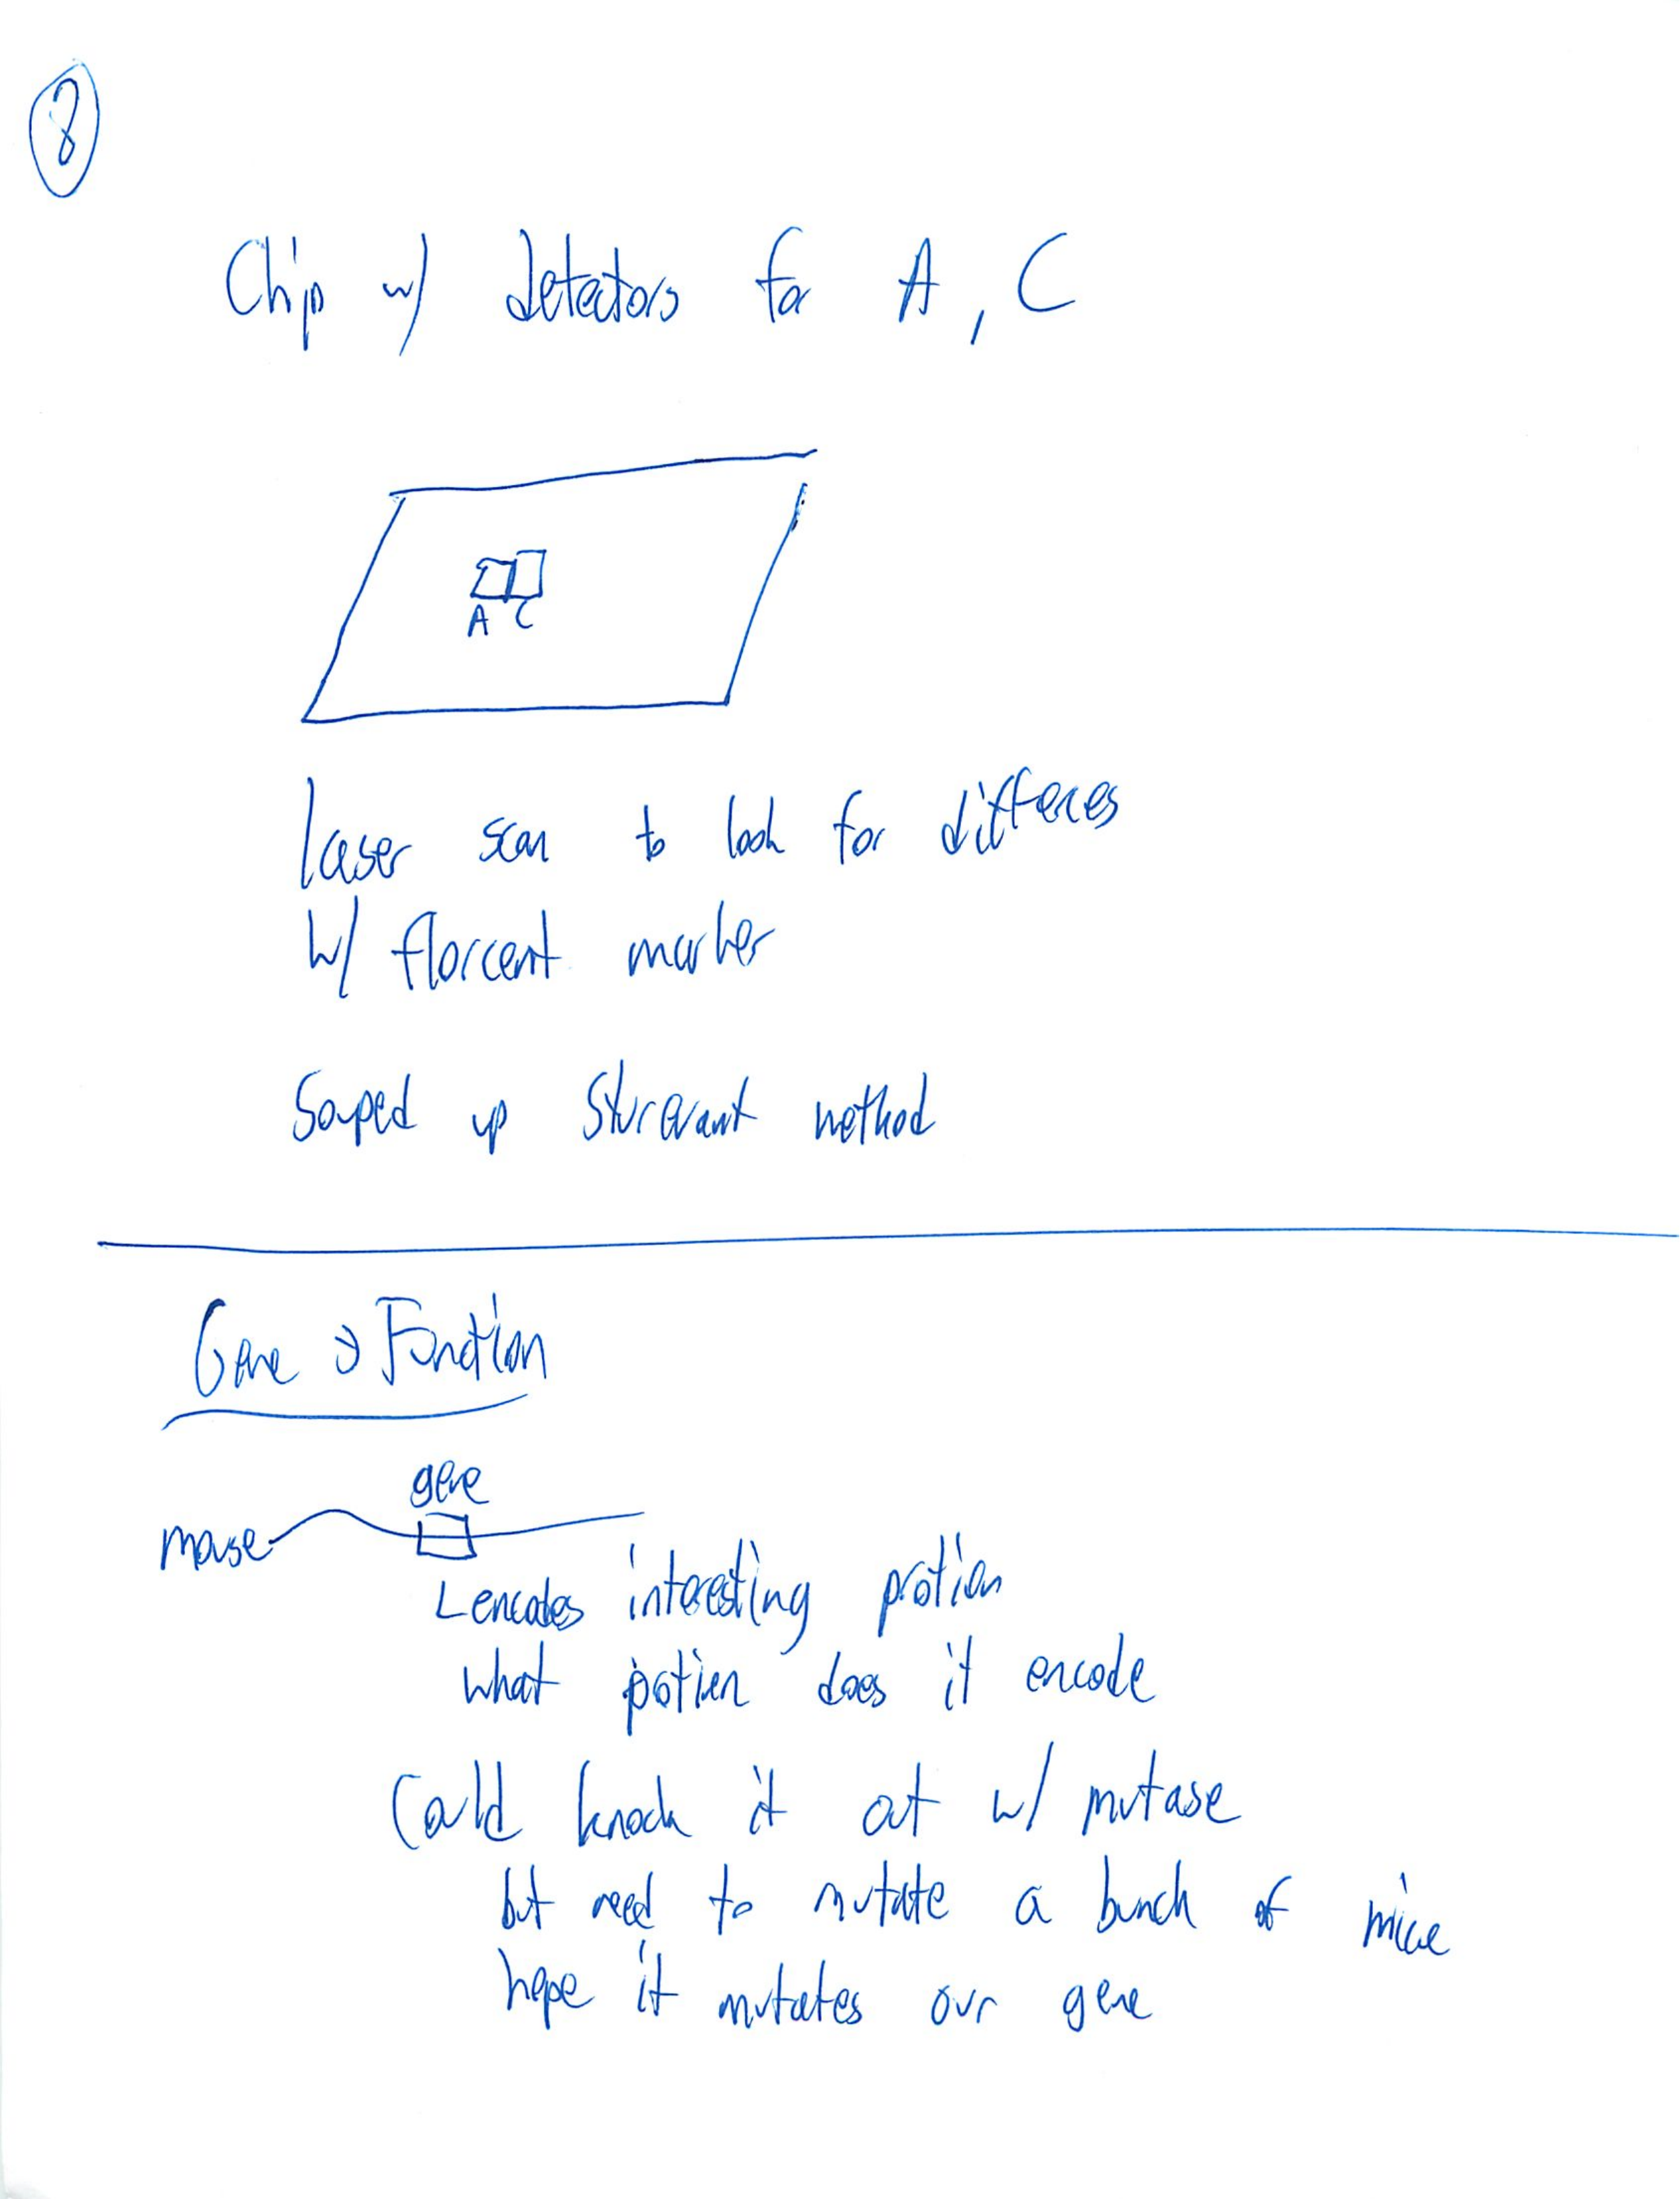 8
Chip w/ detectors for A, C
A C
laser scan to look for differces
w/ florcent marker
Souped up Sturtevant method
Gene → Function
gene
mouse
encodes interesting protien
what potien does it encode
Could knock it out w/ mutase
but need to mutate a bunch of mice
hope it mutates our gene